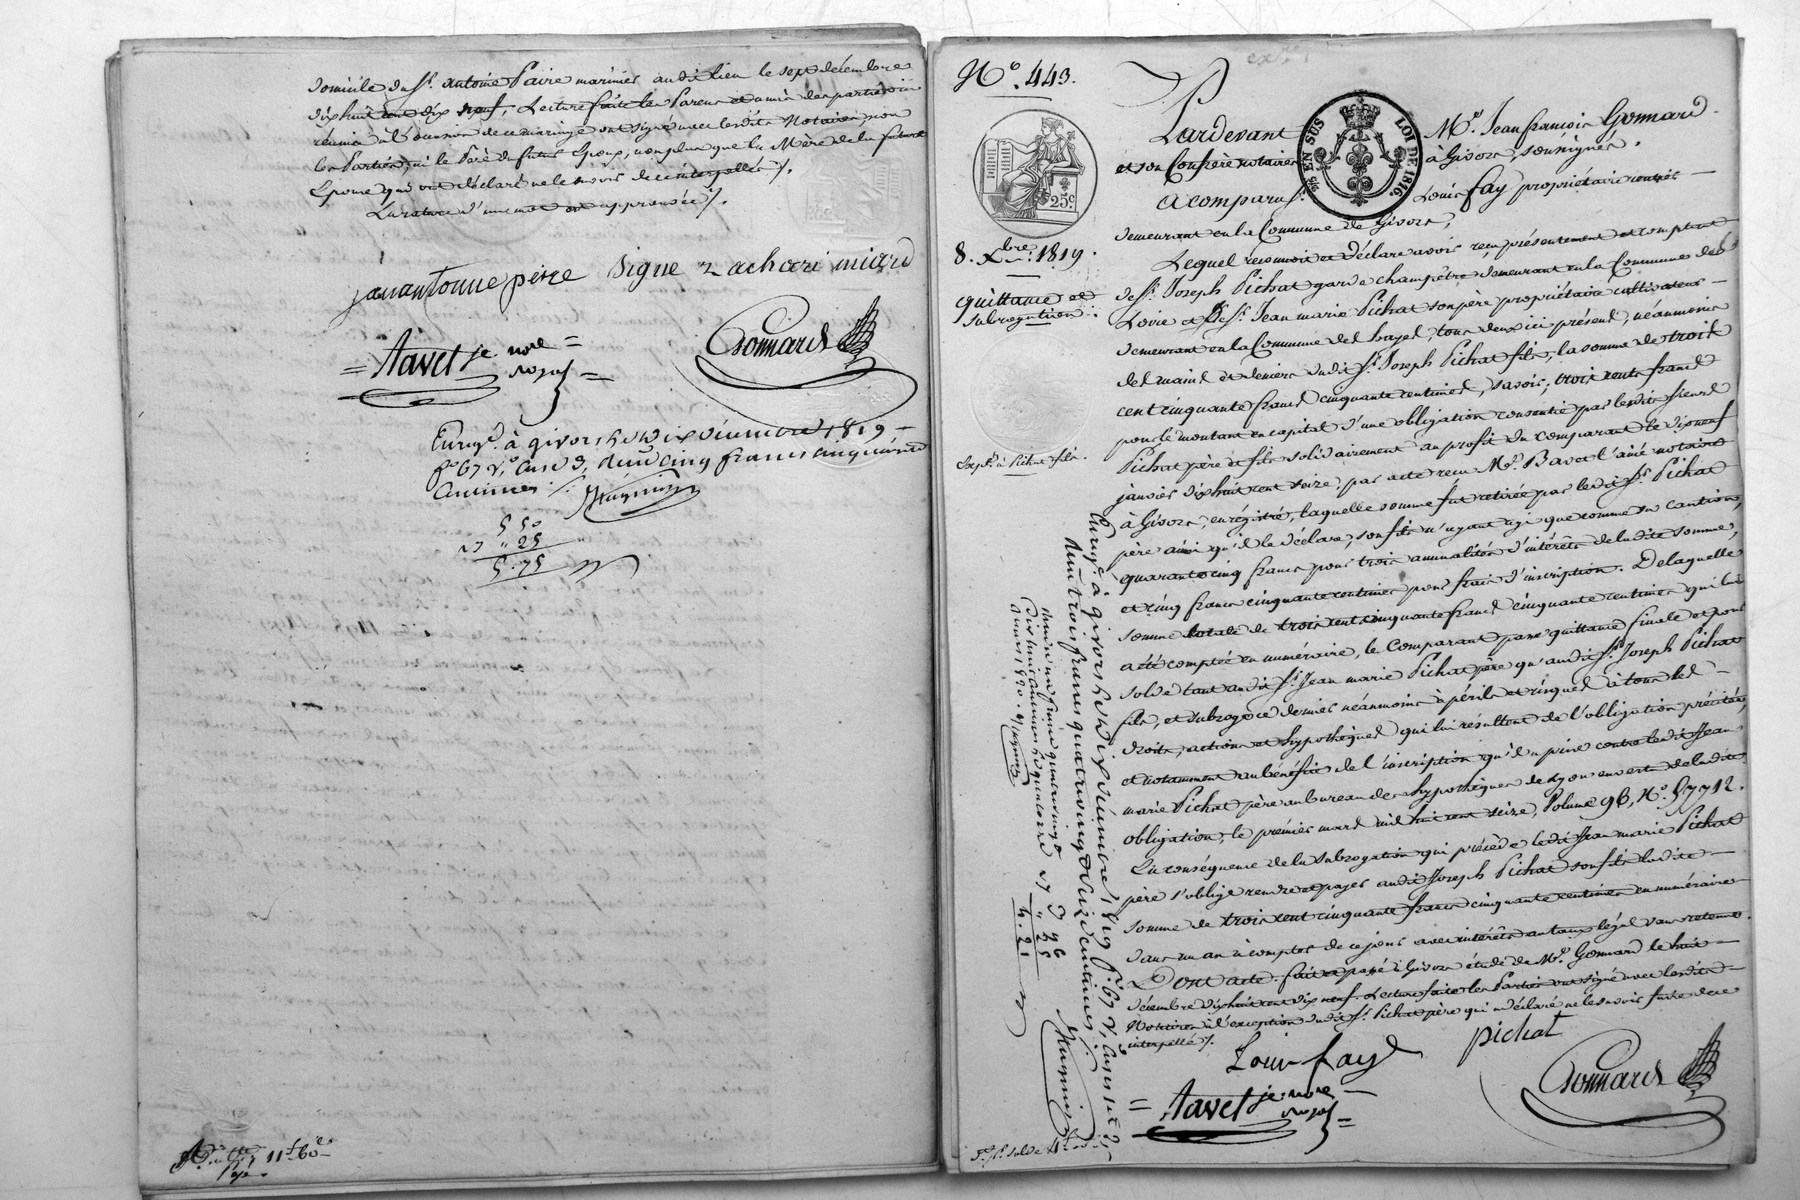 domicile du Sr. antoine Paire marinier audit lieu le sept décembre
dixhuit cent dix neuf, Lecture faite les Parens et amis des parties ici
réunis à l'occasion de ce mariage ont signé avec lesdits Notaires non
les Parties, ni le Père du futur Epoux, non plus que la Mère de la future
Epouse qui ont déclaré ne le savoir de ce interpellés ./.
La rature d'un mot est approuvée ./.
janantonne peire signe zachari miard
Gonnard
= Bavet je. nore =
royal =
Enregé. à givors le dix décembre 1819 —
fo. 67 vo. case 3, Reçu cinq francs cinquante
Centimes ./.
5 50
" 25
5.75
11 f 60 c
No. 443.
Pardevant Me. Jean françois Gonnard
et son Confrère notaires à Givors, soussignés.
EN SUS LOI DE 1816.
25c.
A comparu Sr. Louis Fay propriétaire rentier —
demeurant en la Commune de Givors,
8. Xbre. 1819.
quittance et
subrogation.
Lequel reconnoit et déclare avoir reçu présentement et comptant
de Sr. Joseph Pichat garde champêtre demeurant en la Commune de
Loire et de Sr. Jean marie Pichat son père propriétaire cultivateur —
demeurant en la Commune des hayes, tous deux ici présens, néanmoins
des mains et deniers dudit Sr. Joseph Pichat fils, la somme de trois
cent cinquante francs cinquante centimes, savoir; trois cents francs
pour le montant en capital d'une obligation consentie par lesdits Sieurs
Expé. à Pichat fils.
Pichat père et fils solidairement au profit du comparant le dix neuf
janvier dixhuit cent seize, par acte reçu Me. Bavet l'ainé notaire
à Givors, enrégistré, laquelle somme fut retirée par ledit Sr. Pichat
père ainsi qu'il le déclare, son fils n'ayant agi que comme sa caution,
quarante cinq francs pour trois annualités d'intérêts de ladite somme,
et cinq francs cinquante centimes pour frais d'inscription. De laquelle
somme totale de trois cent cinquante francs cinquante centimes qui lui
a été comptée en numéraire, le Comparant passe quittance finale et pour
solde tant audit Sr. Jean marie Pichat père qu'audit Sr. Joseph Pichat
fils, et subroge ce dernier néanmoins à périls et risques à tous les —
droits, actions et hypothèques qui lui résultent de l'obligation précitée,
et notamment au bénéfice de l'inscription qu'il a prise contre ledit Jean
marie Pichat père au bureau des hypothèques de Lyon en vertu de ladite
obligation, le premier mars mil huit cent seize, Volume 96, No. 57712.
En conséquence de la subrogation qui précède ledit Jean marie Pichat
père s'oblige rendre et payer audit Joseph Pichat son fils ladite —
somme de trois cent cinquante francs cinquante centimes en numéraire
dans un an à compter de ce jour avec intérêts au taux légal sans retenue.
Dont acte. fait et passé à Givors étude de Me. Gonnard le huit —
décembre dixhuit cent dix neuf. Lecture faite les Parties ont signé avec lesdits
Notaires à l'exception dudit Sr. Pichat père qui a déclaré ne le savoir faire de ce
interpellé ./.
Louis fay pichat
Gonnard
= Bavet je. nore —
royal =
Enregé. à givors le dix décembre 1819 fo. 67 vo. case 1 et 2
Reçu trois francs quatre vingt seize centimes ./.
3 96
" 25
4.21